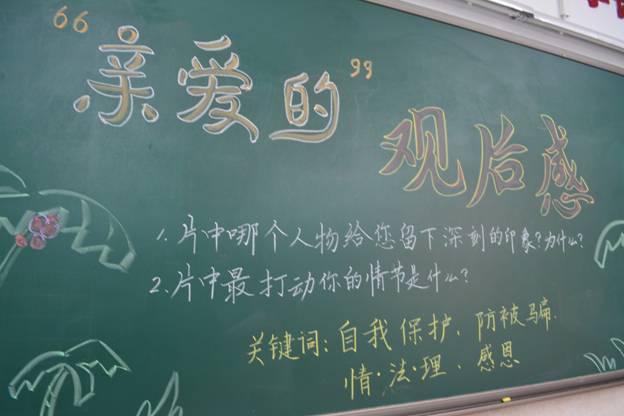 “亲爱的”
观后感
1.片中哪个人物给您留下深刻的印象?为什么?
2.片中最打动你的情节是什么?
关键词:自我保护、防被骗.
情·法·理、感恩